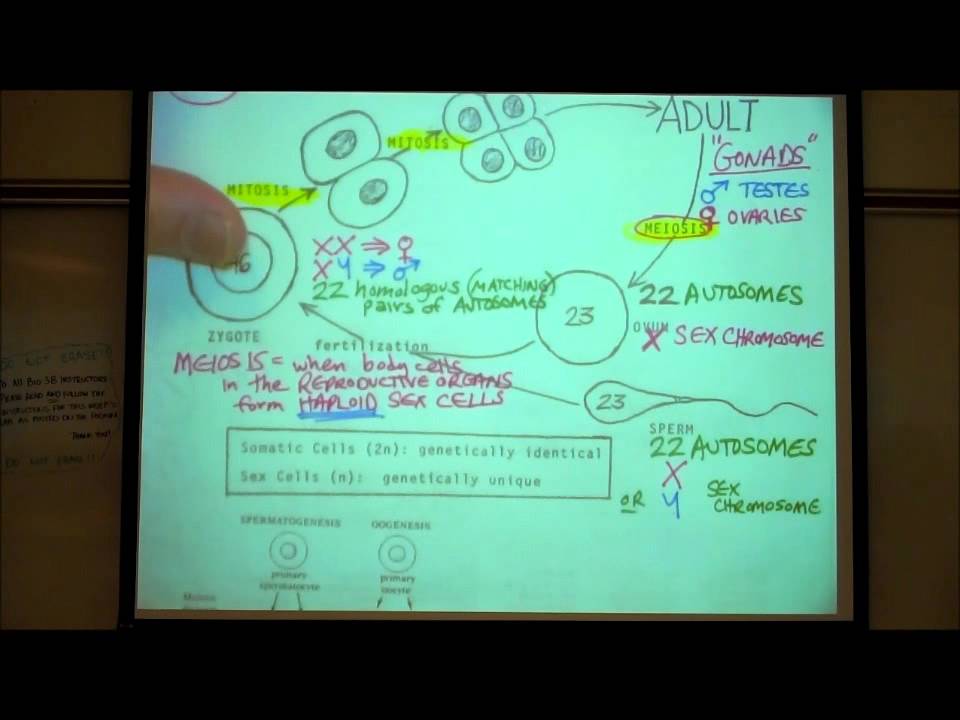 ADULT
"GONADS"
♂ TESTES
♀ OVARIES
MITOSIS
MITOSIS
MEIOSIS
XX ⇒ ♀
XY ⇒ ♂
22 homologous (MATCHING)
pairs of AUTOSOMES
23
22 AUTOSOMES
OVUM
X SEX CHROMOSOME
ZYGOTE
fertilization
MEIOSIS = when body cells
in the REPRODUCTIVE ORGANS
form HAPLOID SEX CELLS
23
SPERM
22 AUTOSOMES
X
OR Y SEX
CHROMOSOME
Somatic Cells (2n): genetically identical
Sex Cells (n): genetically unique
SPERMATOGENESIS
OOGENESIS
primary
spermatocyte
primary
oocyte
DO NOT ERASE
TO All BIO 3B INSTRUCTORS
PLEASE READ AND FOLLOW THE
INSTRUCTIONS FOR THIS WEEK'S
THANK YOU!
DO NOT ERASE!!